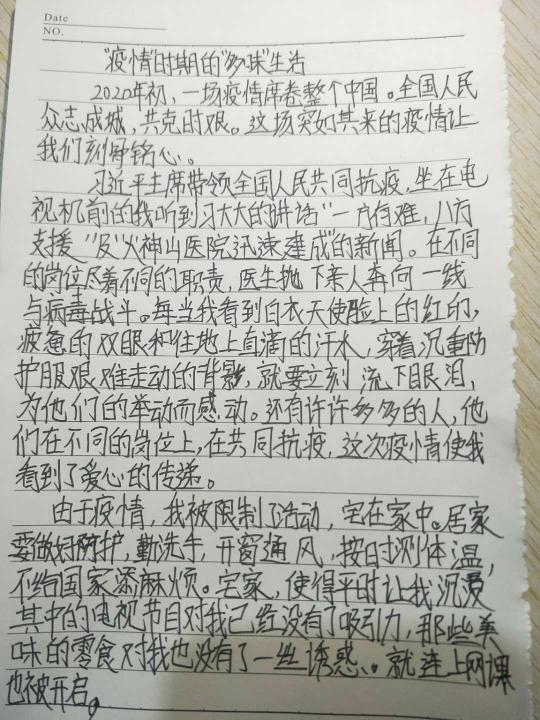 Date
NO.
"疫情"时期的"多味"生活
2020年初，一场疫情席卷整个中国。全国人民
众志成城，共克时艰。这场突如其来的疫情让
我们刻骨铭心。
习近平主席带领全国人民共同抗疫，坐在电
视机前的我听到习大大的讲话"一方有难，八方
支援"及火神山医院迅速建成的新闻。在不同
的岗位尽着不同的职责，医生抛下亲人奔向一线
与病毒战斗。每当我看到白衣天使脸上的红印，
疲惫的双眼和往地上直滴的汗水，穿着沉重防
护服艰难走动的背影，就要立刻流下眼泪，
为他们的举动而感动。还有许许多多的人，他
们在不同的岗位上，在共同抗疫，这次疫情使我
看到了爱心的传递。
由于疫情，我被限制了活动，宅在家中。居家
要做好防护，勤洗手，开窗通风，按时测体温，
不给国家添麻烦。宅家，使得平时让我沉浸
其中的电视节目对我已经没有了吸引力，那些美
味的零食对我也没有了一丝诱惑。就连上网课
也被开启。